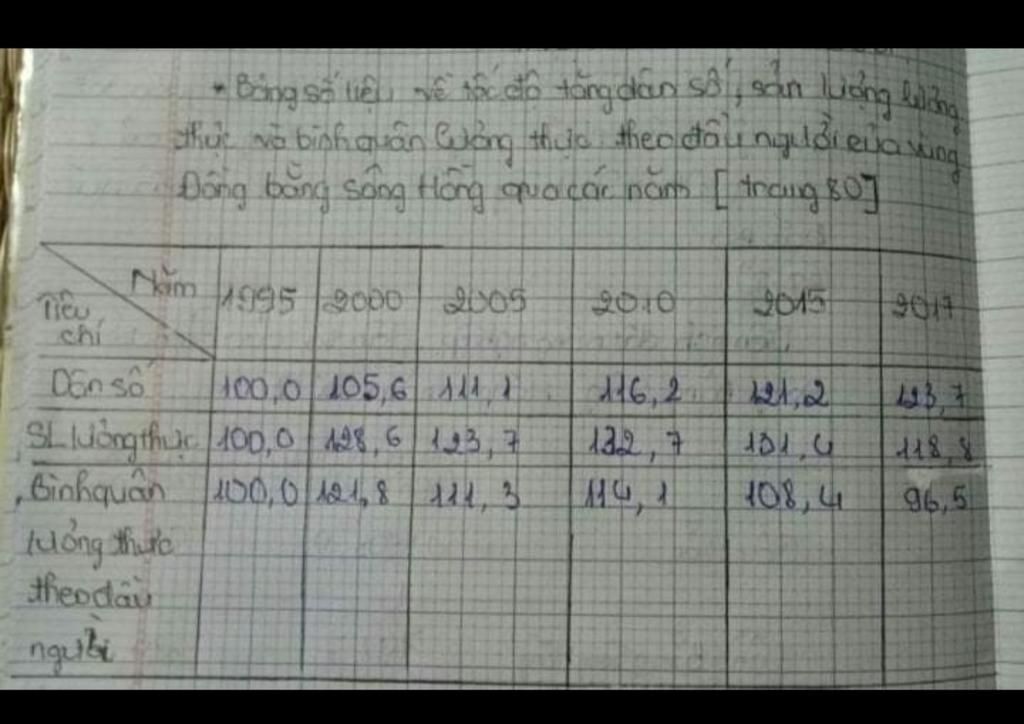 * Bảng số liệu về tốc độ tăng dân số, sản lượng lương
thực và bình quân lương thực theo đầu người của vùng
Đồng bằng sông Hồng qua các năm [trang 80]
Năm
Tiêu chí
1995 2000 2005 2010 2015 2017
Dân số 100,0 105,6 111,1 116,2 121,2 123,7
SL lương thực 100,0 128,6 123,7 132,7 131,4 118,8
Bình quân 100,0 121,8 111,3 114,1 108,4 96,5
lương thực
theo đầu
người